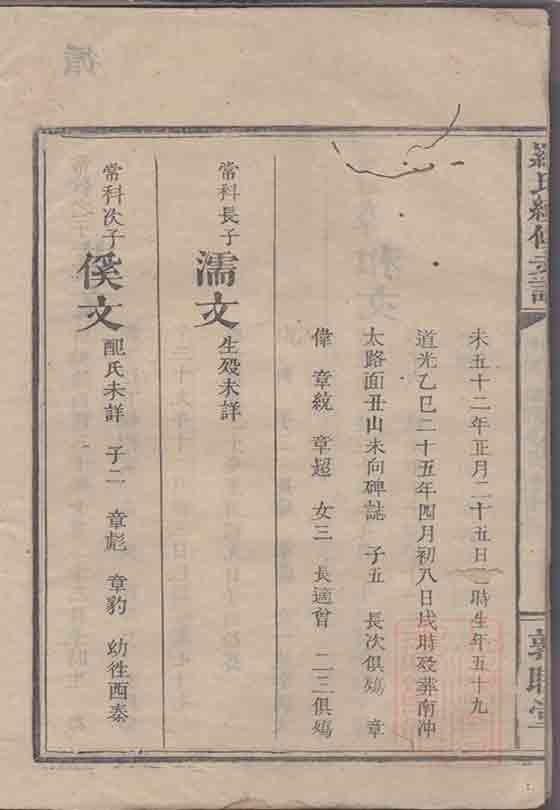 羅氏續修支譜
敦睦堂
未五十二年正月二十五日 時生年五十九
道光乙巳二十五年四月初八日戌時歿葬南冲
太路面丑山未向碑誌 子五 長次俱殤 章
偉 章紋 章超 女三 長適曾 二三俱殤
常科長子
濡文
生歿未詳
常科次子
傒文
配氏未詳 子二 章彪 章豹 幼徃西秦